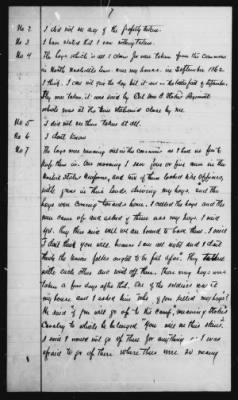 No 2 I did not see any of the property taken.
No 3 I have stated that I saw nothing taken.
No 4 The hogs which is set I claim for were taken from the commons
in North Nashville near my house in September 1862
I think. I was not then the day but it was in the latter part of September.
They were taken it was said by Col Wm B. Stokes Regiment
which was at the time stationed close by me.
No 5 I did not see them taken at all.
No 6 I dont know
No 7 The hogs were running out in the commons as I had no for to
keep them in. One morning I saw four or five men in the
United States uniform, and two of them looked like officers,
with guns in their hands driving my hogs, and the
hogs were coming towards home. I called the hogs and the
men came up and asked if them was my hogs. I said
yes. They then said well we are bound to have them. I said
I dont think you will, however I am all right and I dont
think the union folks ought to be fed after. They talked
with each other and went off then. Their may hogs was
taken a few days after that. One of the soldiers was at
my house and I asked him "who of you killed my hogs"?
He said "if you will go up to the camp", meaning Stokes
Cavalry to which he belonged "You will see their skins".
I said I would not go up there for anything as I was
afraid to go up there where there were so many